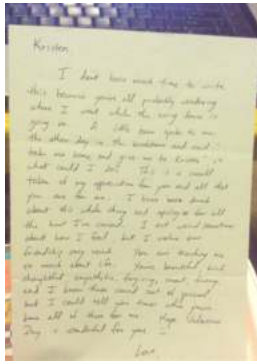 Kristen
I don't have much time to write
this because you're all probably wondering
where I went while the song
going on. A little bear spoke to me
the other day in the bookstore and said "
take me home and give me to Kristen" so
what could I do? This is a small
token of my appreciation for you and all that
you are for me. I have been
about this whole thing and apologize for all
the hurt I've caused. I act weird sometimes
about how I feel but I value our
friendship very much. You are teaching me
so much about life. You're beautiful, kind,
thoughtful, empathetic, forgiving, sweet, loving
and I know these sound sort of general
but I could tell you times that you've
been all of these for me. Hope Valentine's
Day is wonderful for you :)
Love,